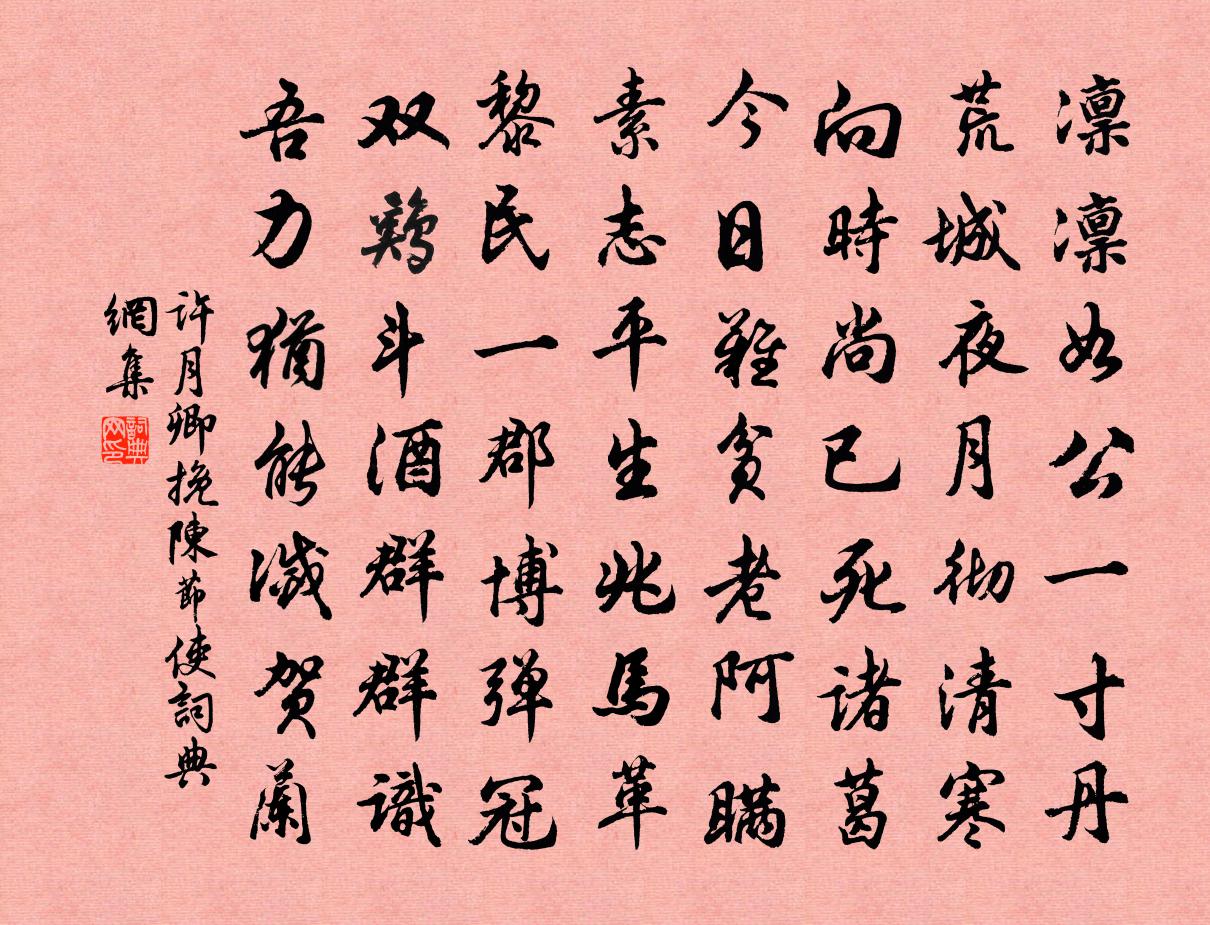 凛凛如公一寸丹
荒城夜月彻清寒
向時尚已死诸葛
今日難貧老阿瞒
素志平生兆馬革
黎民一郡博弹冠
双鶏斗酒群群識
吾力猶能滅贺蘭
許月卿挽陳節使詞典
網集
詞典網印